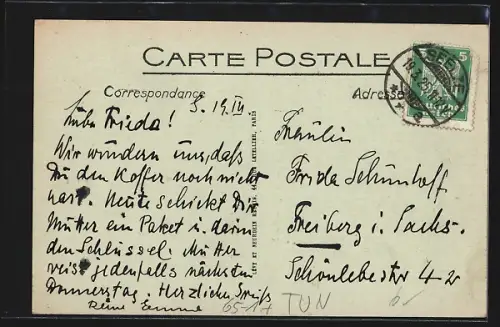 CARTE POSTALE
Correspondance
Adresse
S. 19. IV
Liebe Frieda!
Wir wundern uns, daß
Du den Koffer noch nicht
hast. Heute schickt Dir
Mutter ein Paket i. darin
den Schlüssel. Mutter
reist jedenfalls nächsten
Donnerstag. Herzlichen Gruß
Deine
LÉVY ET NEURDEIN RÉUNIS, 44, RUE LETELLIER, PARIS
5
Fräulein
Frida Schünhoff
Freiberg i. Sachs.
Schönlebestr 42
65-17
TUN